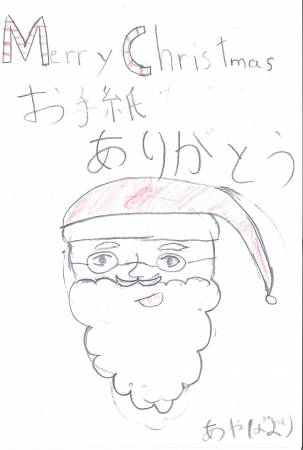 Merry Christmas
お手紙
ありがとう
あやばより